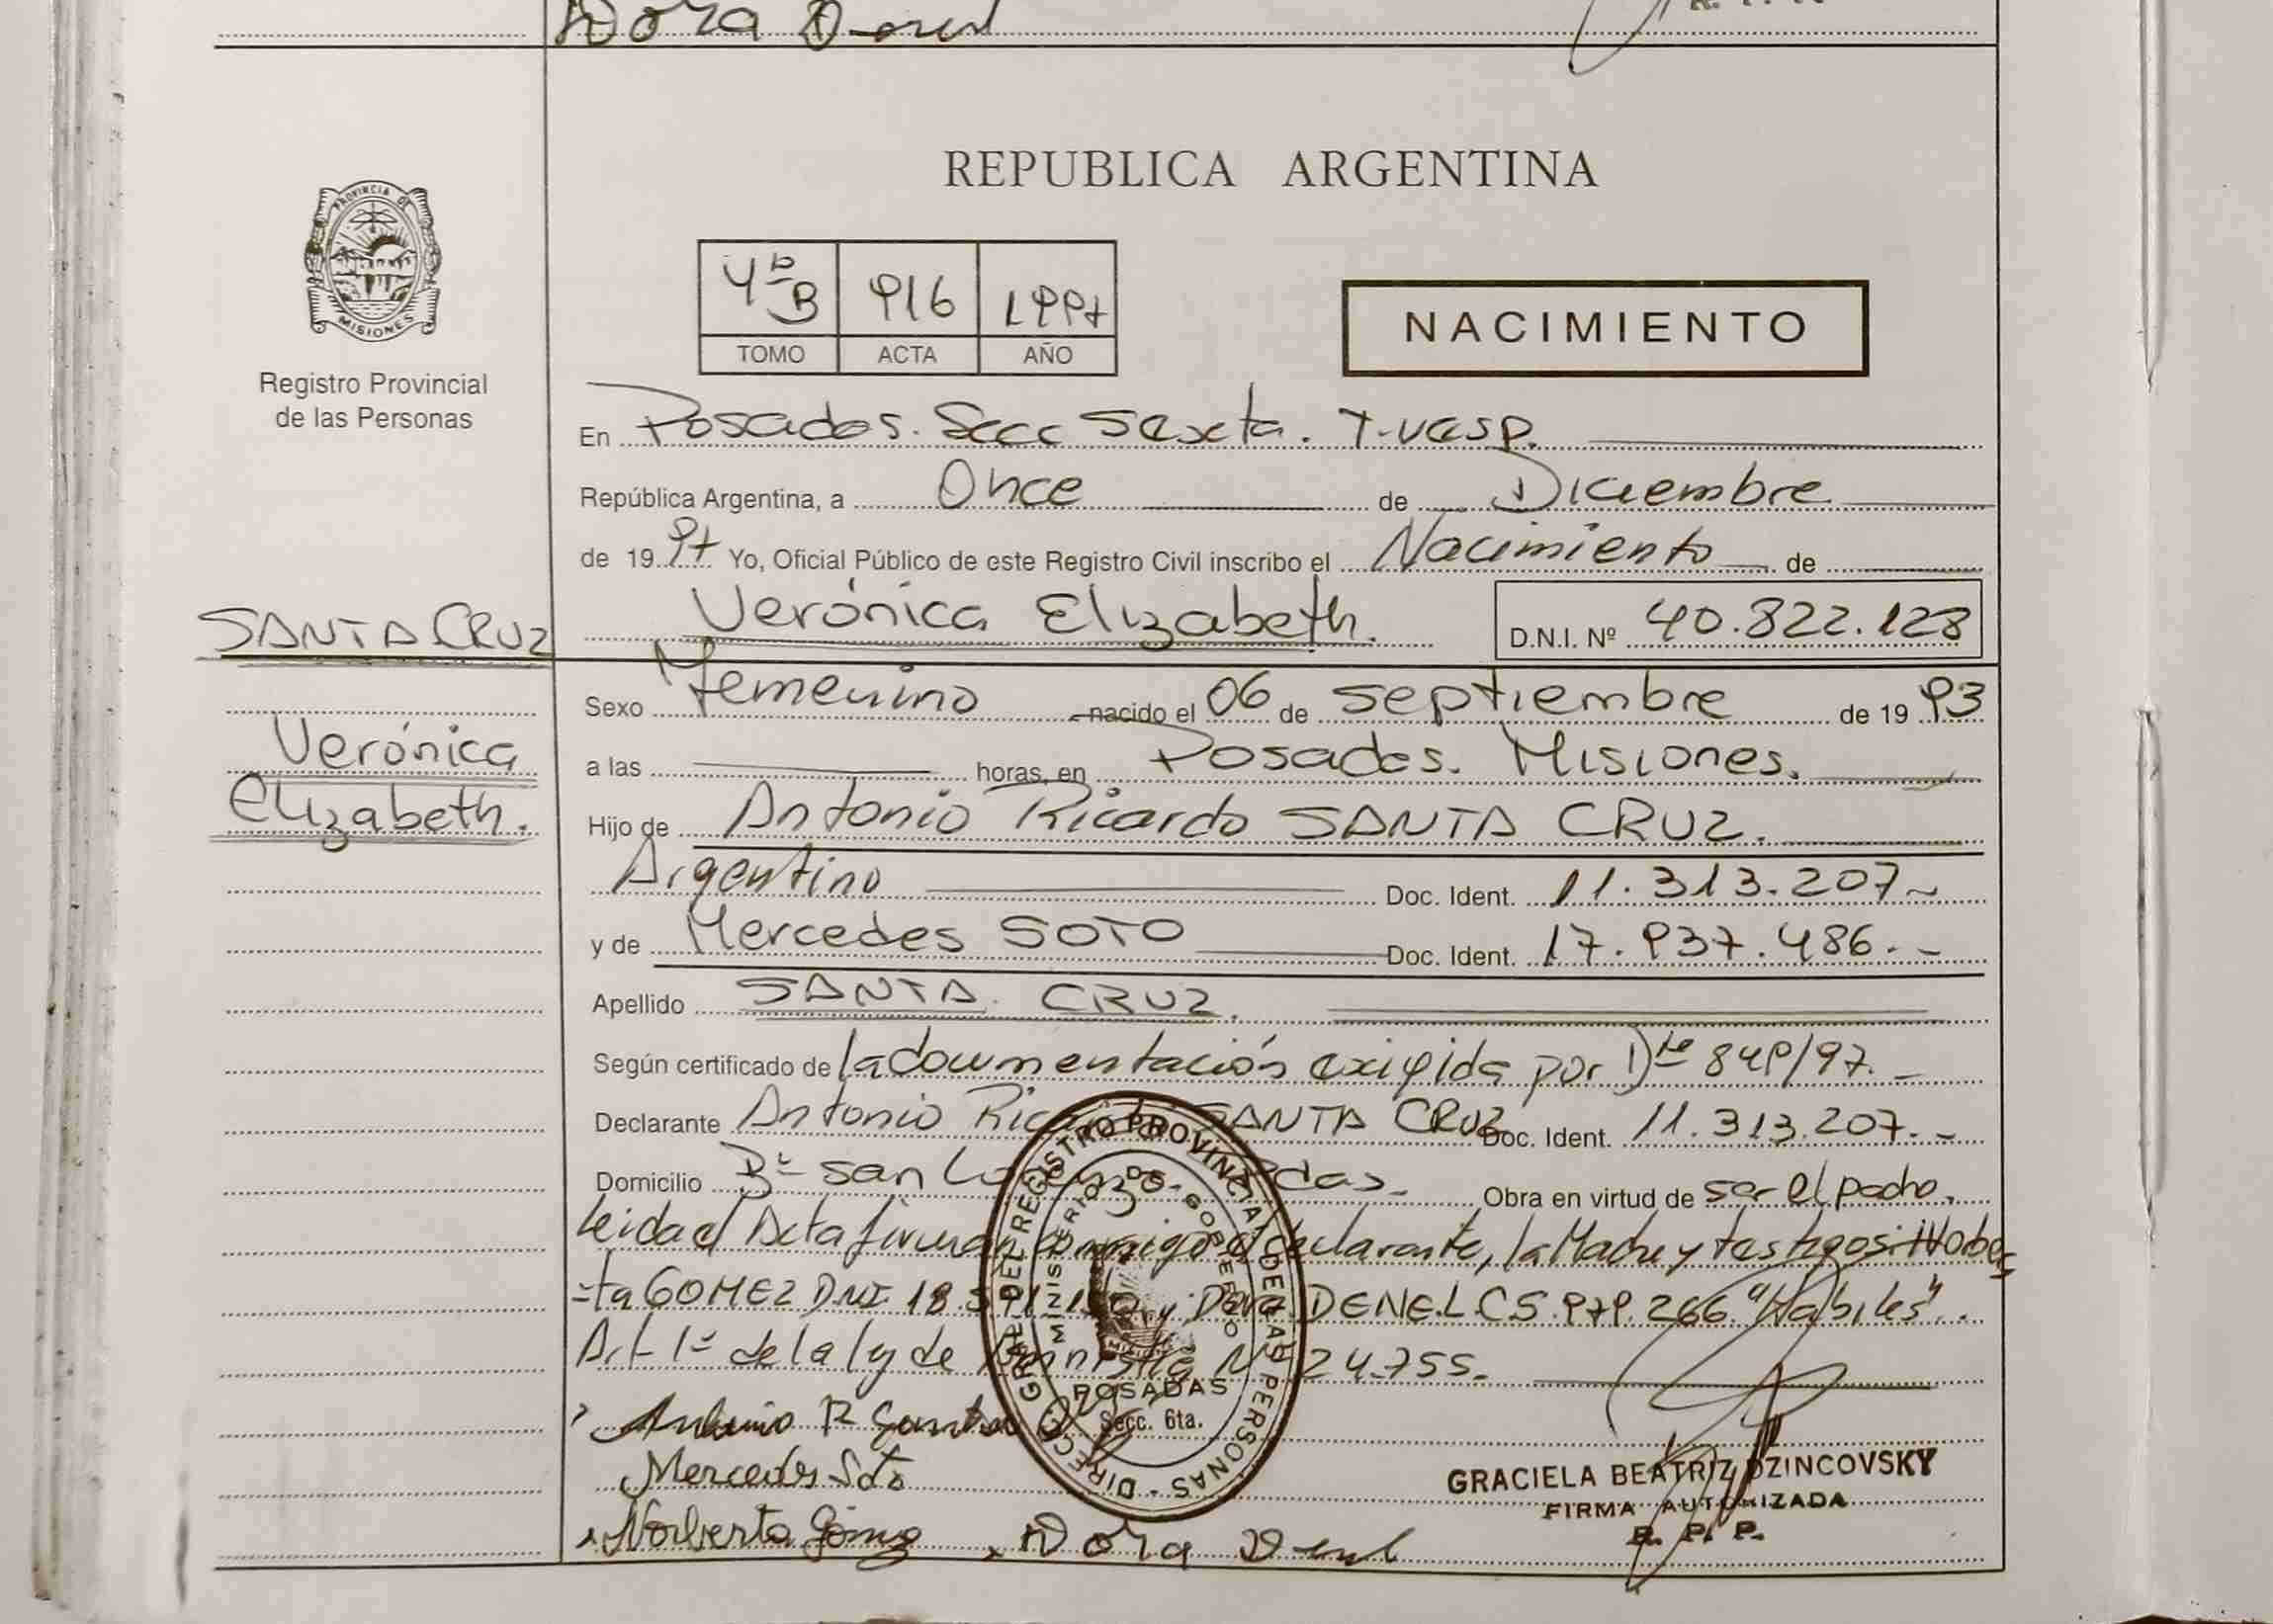 Dora Denel
REPUBLICA ARGENTINA
PROVINCIA DE
MISIONES
Registro Provincial
de las Personas
4º B 916 1997
TOMO ACTA AÑO
NACIMIENTO
En Posadas. Secc Sexta. T. vesp.
República Argentina, a Once de Diciembre
de 1997 Yo, Oficial Público de este Registro Civil inscribo el Nacimiento de
SANTA CRUZ
Verónica Elizabeth. D.N.I. Nº 40.822.128
Verónica
Elizabeth.
Sexo Femenino nacido el 06 de septiembre de 1993
a las horas, en Posadas. Misiones.
Hijo de Antonio Ricardo SANTA CRUZ.
Argentino Doc. Ident. 11.313.207.-
y de Mercedes SOTO Doc. Ident. 17.937.486.-
Apellido SANTA CRUZ.
Según certificado de la documentación exigida por Dto 849/97.-
Declarante Antonio Ricardo SANTA CRUZ Doc. Ident. 11.313.207.-
Domicilio Bº San Lorenzo. Pdas. Obra en virtud de ser el padre.
leida el Acta firman conmigo el declarante, la Madre y testigos: Norber
=ta GOMEZ DNI 18. y Dora DENEL L.C 5.979.266 "Habiles".
Art 1º de la ley de Amnistia Nº 24.755.
DIRECC. GRAL. DEL REGISTRO PROVINCIAL DE LAS PERSONAS
MINISTERIO DE GOBIERNO
MISIONES
POSADAS
Secc. 6ta.
Antonio R Santa Cruz
Mercedes Soto
Norberta Gómez Dora Denel
GRACIELA BEATRIZ DZINCOVSKY
FIRMA AUTORIZADA
R. P. P.